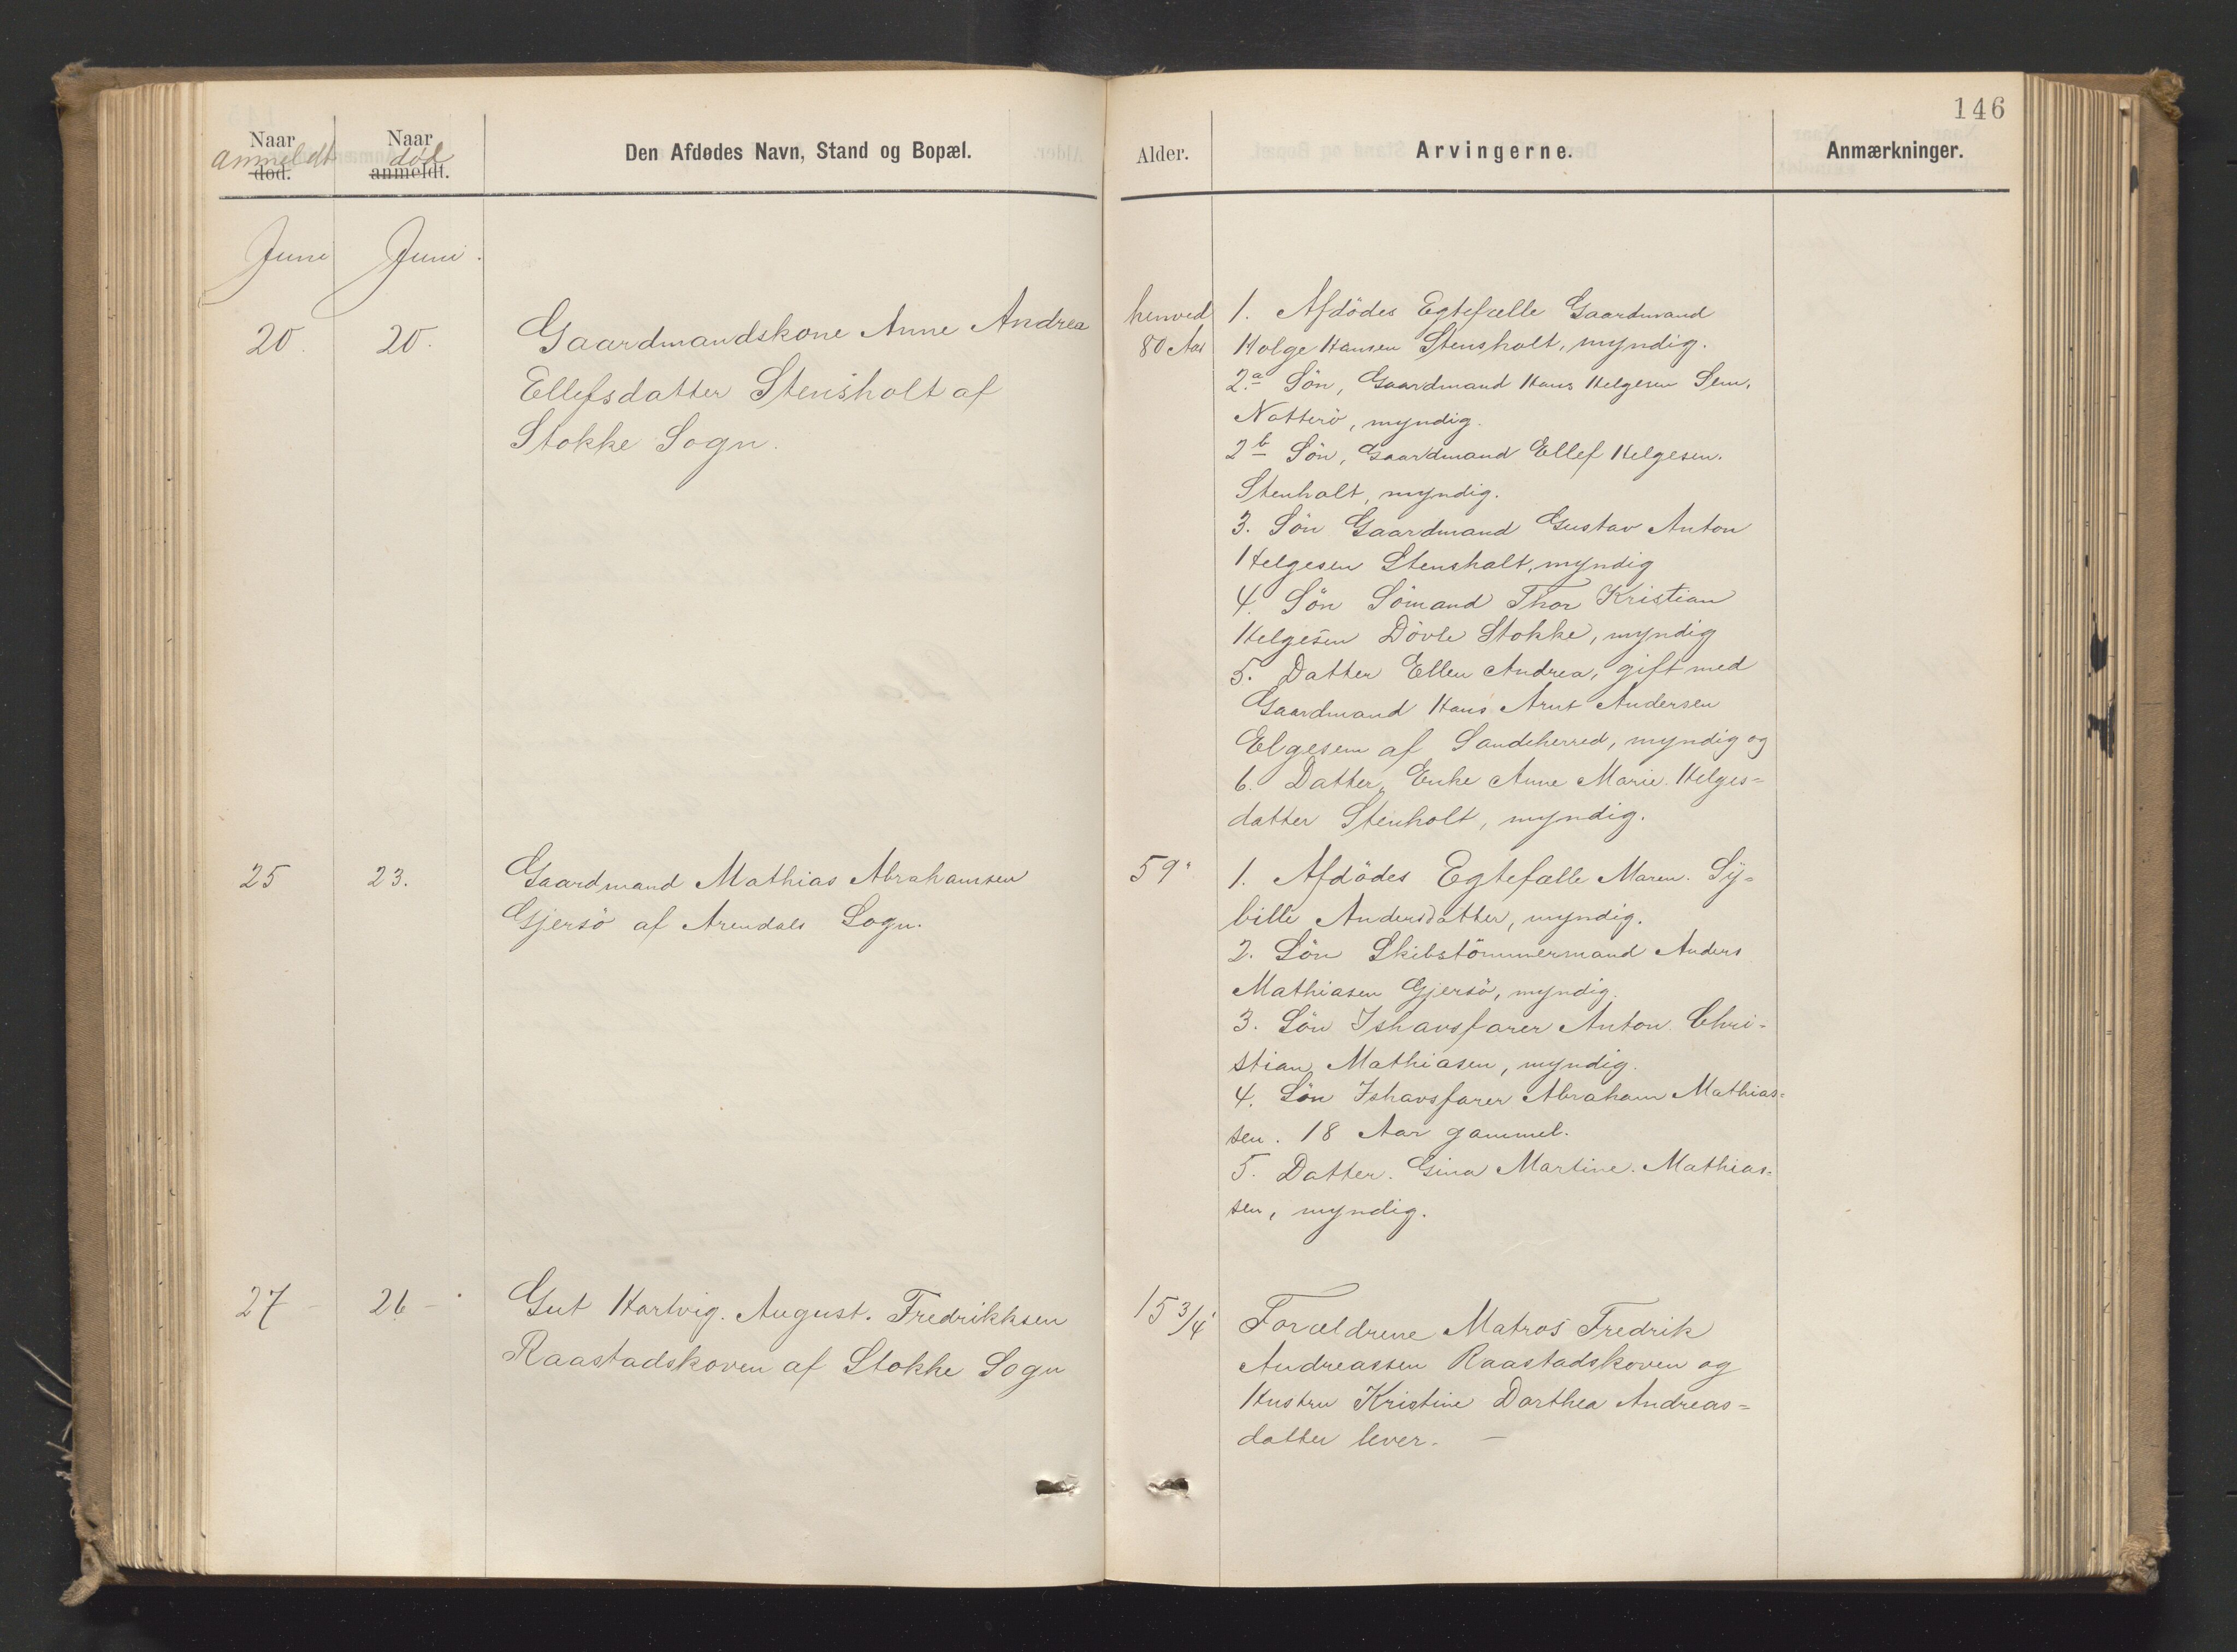 146
Naar anmeldt død.
Naar død anmeldt.
Den Afdødes Navn, Stand og Bopæl.
Alder.
Arvingerne.
Anmærkninger.
Juni
Juni.
20.
20.
Gaardmandskone Anne Andrea
Ellefsdatter Stensholt af
Stokke Sogn.
henved
80 Aar
1. Afdödes Egtefælle Gaardmand
Holge Hansen Stensholt, myndig.
2.a Sön, Gaardmand Hans Helgesen Sem,
Notterö, myndig.
2b Sön, Gaardmand Ellef Helgesen.
Stenholt, myndig.
3. Sön Gaardmand Gustav Anton
Helgesen Stensholt, myndig
4. Sön Sömand Thor Kristian
Helgesen Dövle Stokke, myndig
5. Datter Ellen Andrea, gift med
Gaardmand Hans Arnt Andersen
Elgesem af Sandeherred, myndig og
6. Datter, Enke Anne Marie Helges=
datter Stenholt, myndig.
25
23.
Gaardmand Mathias Abrahamsen
Gjersö af Arendals Sogn.
59
1. Afdödes Egtefælle Maren. Sy=
bille Andersdatter, myndig.
2. Sön Skibstömmermand Anders
Mathiasen Gjersö, myndig.
3. Sön Ishavsfarer Anton Chri-
stian Mathiasen, myndig.
4. Sön Ishavsfarer Abraham Mathias=
sen. 18 Aar gammel.
5. Datter. Gina Martine. Mathias=
sen, myndig.
27 –
26 –
Gut Hartvig. August. Fredrikksen
Raastadskoven af Stokke Sogn
15 3/4
Forældrene Matros Fredrik
Andreassen Raastadskoven og
Hustru Kristine Dorthea Andreas=
datter lever. –